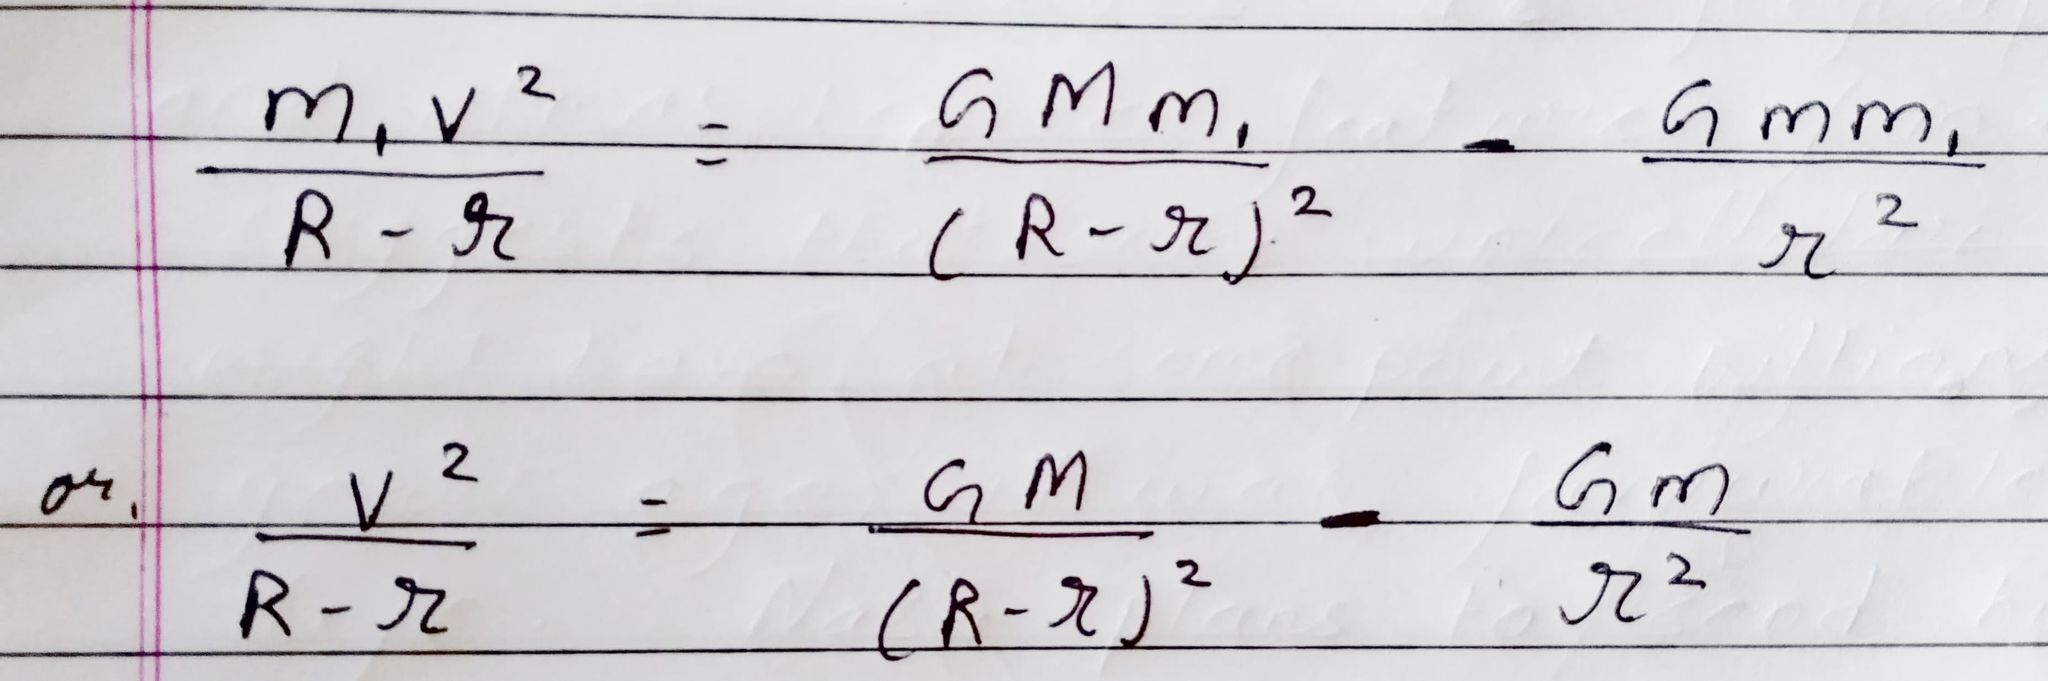 m₁v²/(R-r) = GMm₁/(R-r)² - Gmm₁/r²
or, v²/(R-r) = GM/(R-r)² - Gm/r²